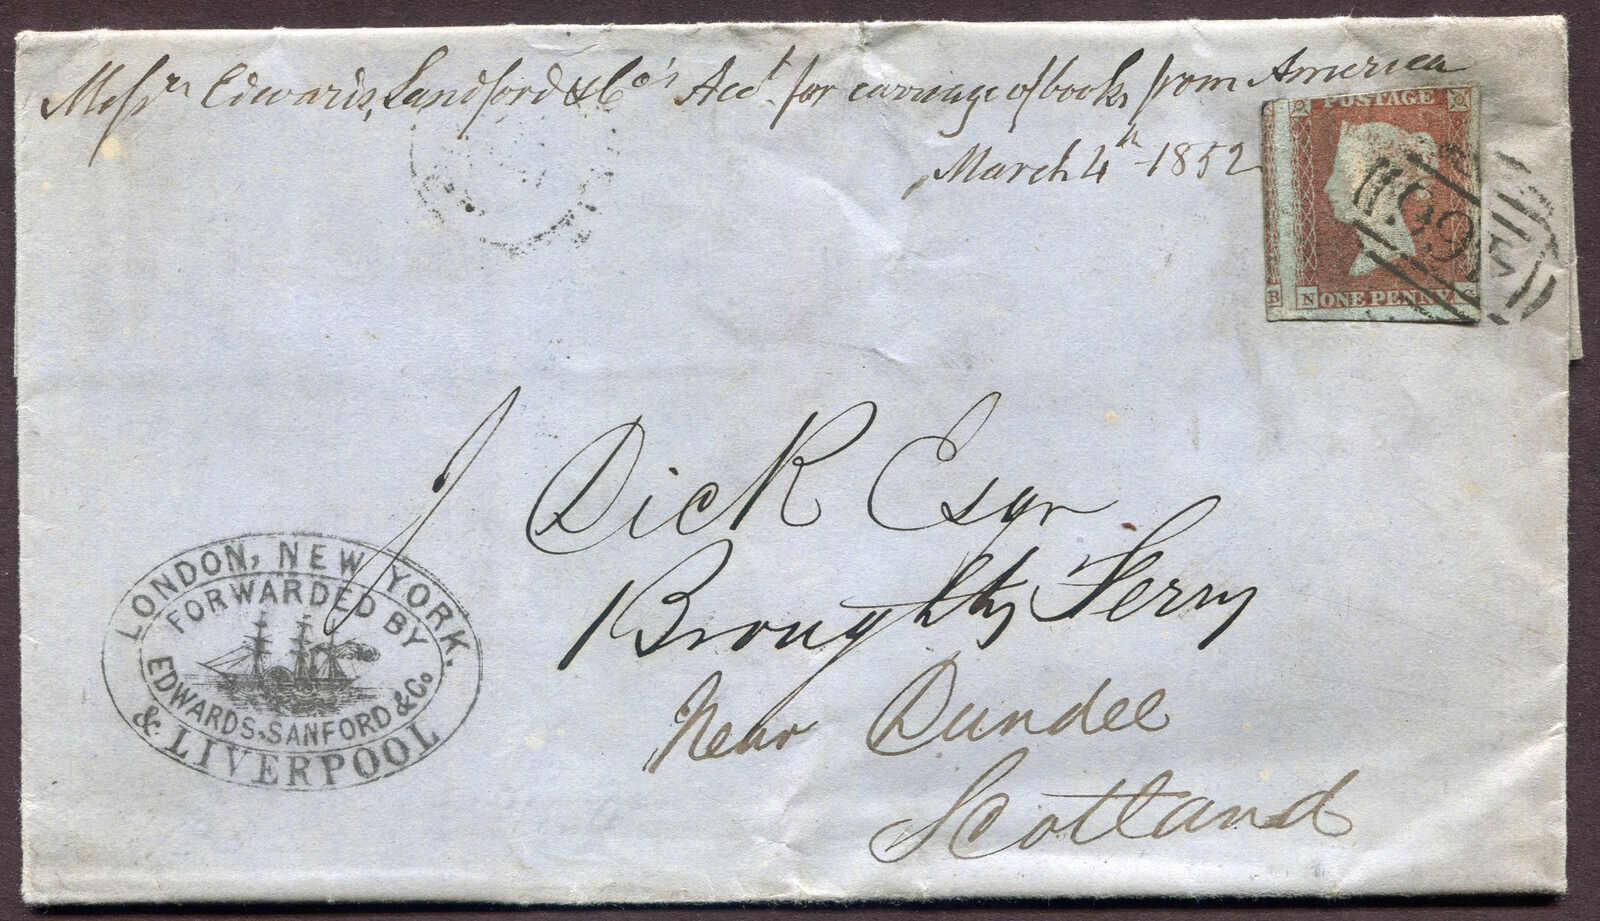 Messrs Edwards, Sandford & Co's Acct for carriage of books from America
March 4th 1852
POSTAGE
B N ONE PENNY G
J Dick Esqr
Broughty Ferry
Near Dundee
Scotland
LONDON, NEW YORK,
FORWARDED BY
EDWARDS, SANFORD & Co
& LIVERPOOL